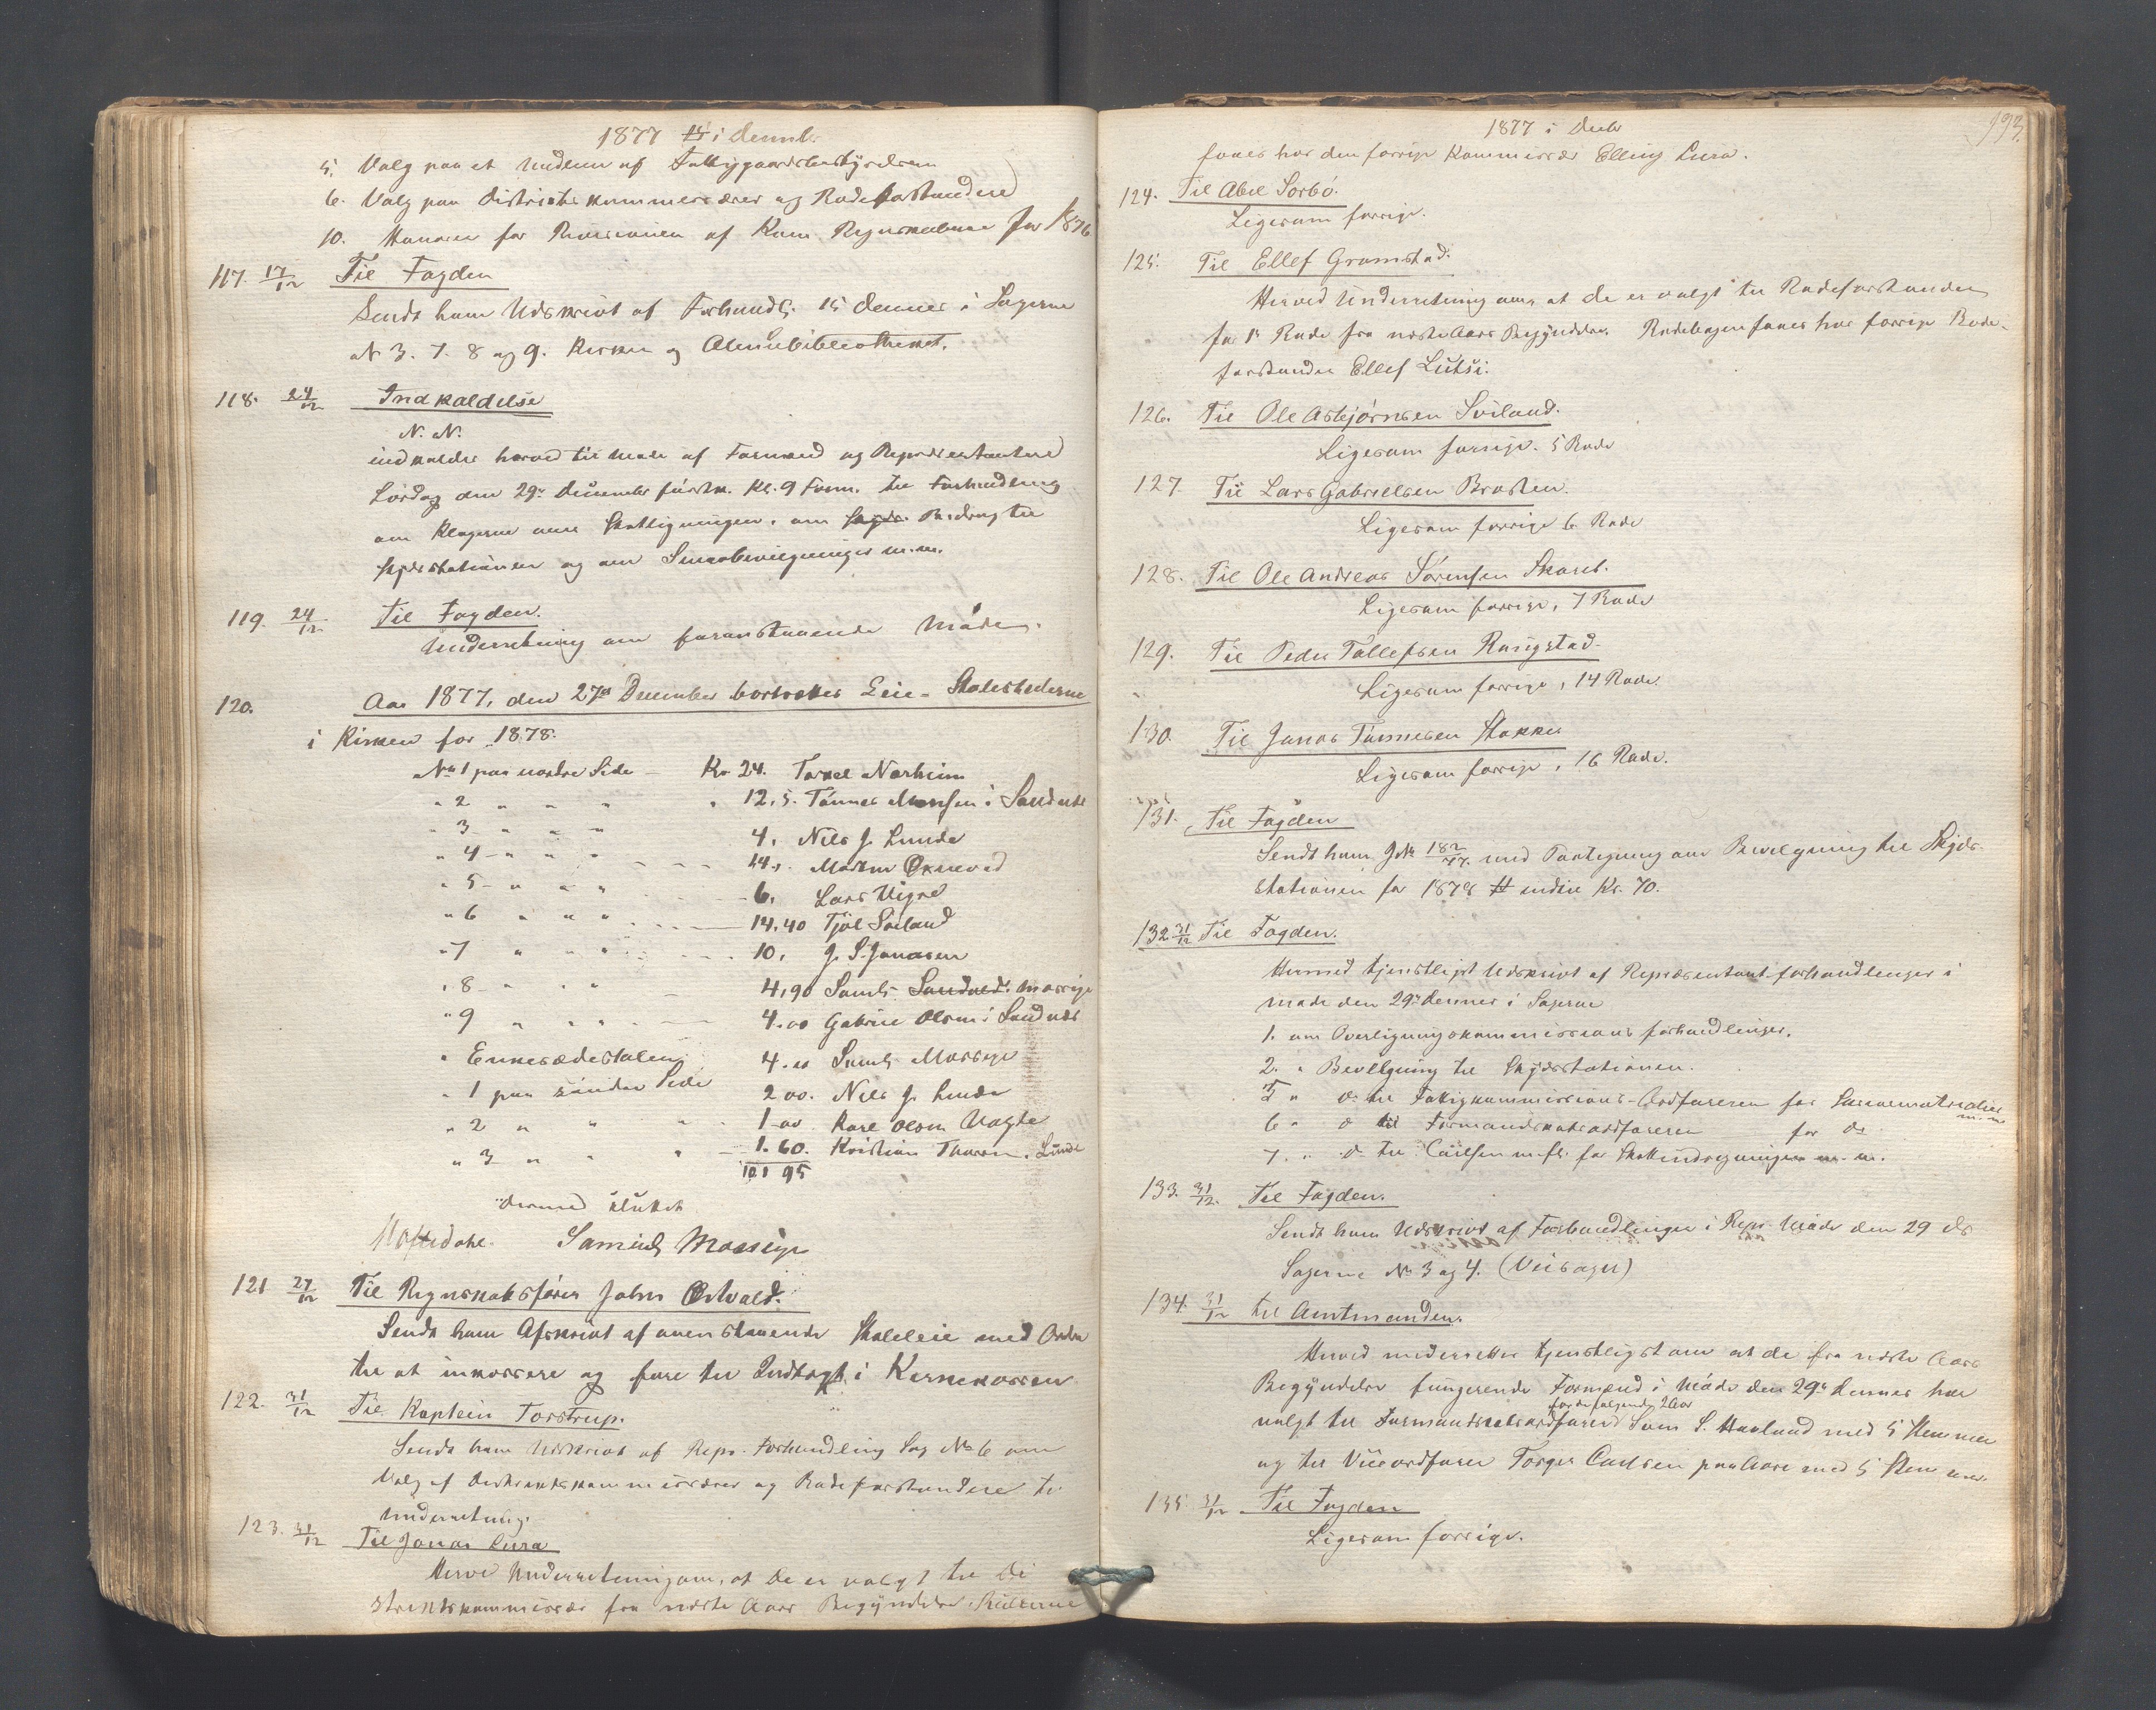 1877 i Decemb.
5. Valg paa et Medlem af Fattiggaardsbestyrelsen
6. Valg paa Districtskommissærer og Rodeforstandere
10. Honorar for Revisionen af Kom. Regnskaberne for 1876
117. 17/12 Til Fogden
Sendt ham Udskrivt af Forhandl. 15 dennes i Sagerne
N 3. 7. 8 og 9. Kirken og Almuebibliotheket.
118. 24/12 Indkaldelse
N. N.
indkaldes herved til Møde af Formænd og Repræsentantene
Lørdag den 29de December førstk. Kl. 9 Form. til Forhandling
om Klagerne over Skatligningen, om Skyds Bidrag til
Skydsstationen og om Smaabevilgninger m.m.
119. 24/12 Til Fogden.
Underretning om foranstaaende Møde.
120. Aar 1877, den 27de December bortsattes Leie-Stolestederne
i Kirken for 1878.
No 1 paa nordre Side - Kr 24. Torkel Norheim
" 2 " " " " 12,5. Tønnes Monsen i Sandnes
" 3 " " " 4, Nils J. Lunde
" 4 - " " " - - - 14, Morten Øxnevad
" 5 - " " " - 6, Lars Vigre
" 6 " " " - - 14,40 Tjøl Soiland
" 7 " " " - - 10, J. S. Jonasen
" 8 - " " " - 4,90 Saml. Sandved. Massige
" 9 " " " - 4.00 Gabriel Olsen i Sandnes
" Enkesædestolen 4.00 Saml. Massige
" 1 paa søndre Side 2 00. Nils J. Lunde
" 2 " " " " 1-00 Karl Olsen Vagle
" 3 " " " - 1.60. Kristian Thorsen, Lunde
101 95
Dermed sluttet
Haftedahl. Samuel Massige
121 27/12 Til Regnskabsfører John Østvold.
Sendt ham Afskrivt af ovenstaaende Stoleleie med Ordre
til at inkassere og føre til Indtægt i Kirkekassen
122. 31/12 Til Kaptein Torstrup.
Sendt ham Udskrivt af Repr. Forhandling Sag No 6 om
Valg af Distriktskommissærer og Rodeforstandere til
Underretning.
123. 31/12 Til Jonas Lura
Herved Underretning om, at De er valgt til Di
striktskommissær fra næste Aars Begyndelse. Rullerne
193.
1877 i Decbr
faaes hos den forrige Kommissær Elling Lura.
124. Til Abel Sørbø.
Ligesom forrige.
125. Til Ellef Gramstad.
Herved Underretning om, at De er valgt til Rodeforstander
for 1ste Rode fra næste Aars Begyndelse. Rodebogen faaes hos forrige Rode-
forstander Ellef Lutsi.
126. Til Ole Asbjørnsen Sviland.
Ligesom forrige. 5 Rode
127. Til Lars Gabrielsen Brasten.
Ligesom forrige 6 Rode
128. Til Ole Andreas Sørensen Skaret.
Ligesom forrige, 7 Rode
129. Til Peder Tollefsen Ringstad.
" Ligesom forrige, 14 Rode.
130. Til Jonas Tønnesen Stokke
Ligesom forrige, 16 Rode.
131. Til Fogden
Sendt ham J No 182/77. med Paategning om Bevilgning til Skyds-
stationen for 1878 endvi Kr. 70.
132 31/12 Til Fogden.
Hermed tjenstligst Udskrivt af Repræsentantforhandlinger i
Møde den 29de dennes i Sagerne
1. om Overligningskommissions forhandlinger.
2. " Bevilgning til Skydsstationen.
5 " do til Fattigkommissions-Ordføreren for Skrivematerialier
m.m
6 " do til Formandskabsordføreren for do
7. " do til Carlsen m.fl. for Skatteindregninger m.m.
133. 31/12. Til Fogden.
Sendt ham Udskrivt af Forhandlinger i Repr. Møde den 29 ds
Sagerne No 3 og 4. (Veisager)
134. 31/12 Til Amtmanden.
Herved underrettes tjenstligst om at de fra næste Aars
Begyndelse fungerende Formænd i Møde den 29de dennes har
for de følgende 2 Aar
valgt til Formandskabsordfører Som S. Hauland med 5 Stemmer
og til Viceordfører Torger Carlsen paa Aase med 5 Stemmer.
135. 31/12 Til Fogden
Ligesom forrige.